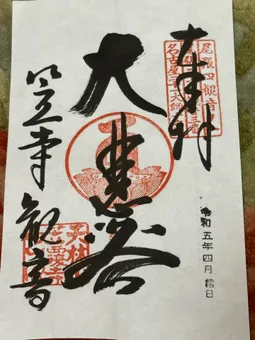 奉拝
尾張四観音
名古屋二十一大師
大悲殿
笠寺観音
令和五年四月 日